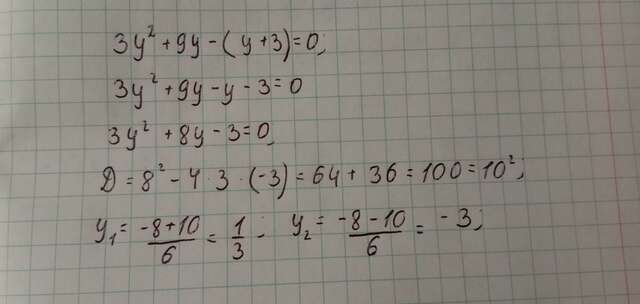 3y² + 9y - (y + 3) = 0;
3y² + 9y - y - 3 = 0
3y² + 8y - 3 = 0,
D = 8² - 4 · 3 · (-3) = 64 + 36 = 100 = 10²;
y₁ = (-8 + 10)/6 = 1/3; y₂ = (-8 - 10)/6 = -3;